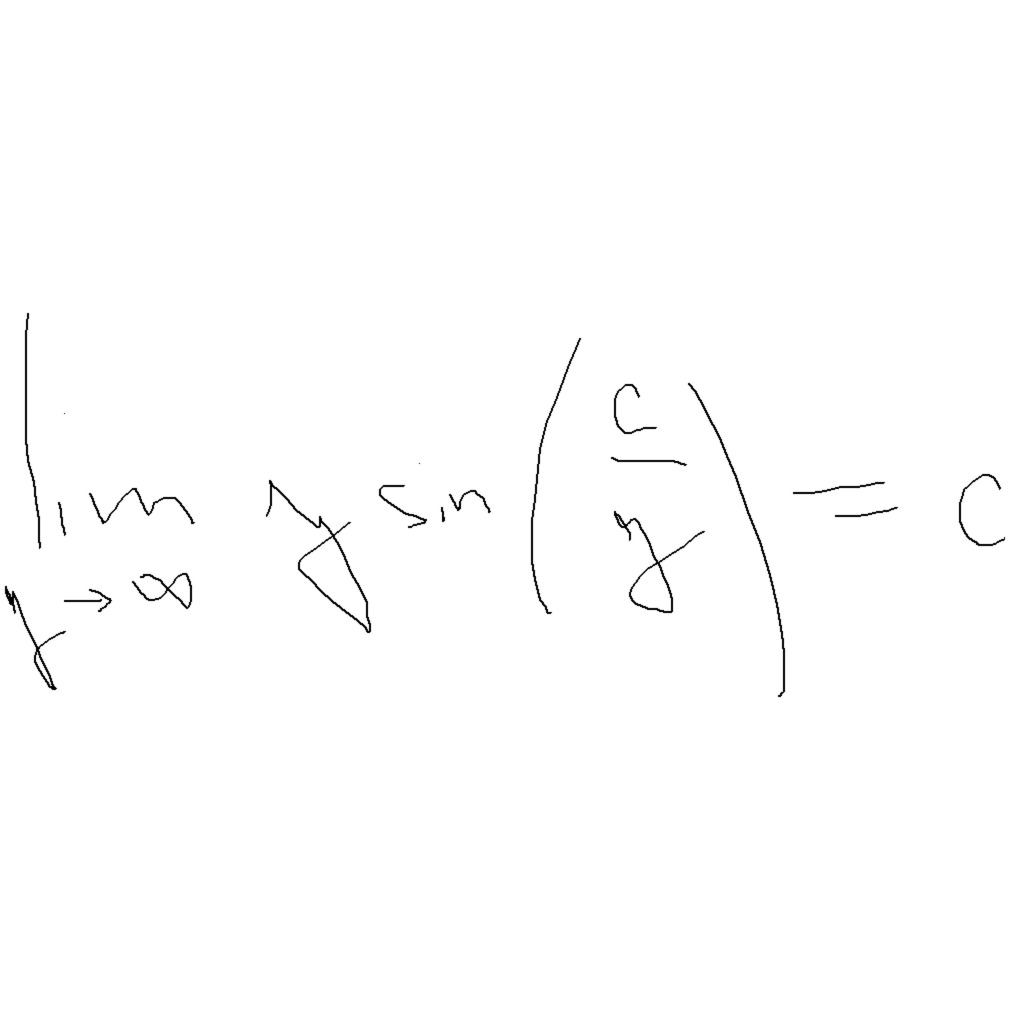 \lim_{y \to \infty} y \sin \left( \frac{c}{y} \right) = c